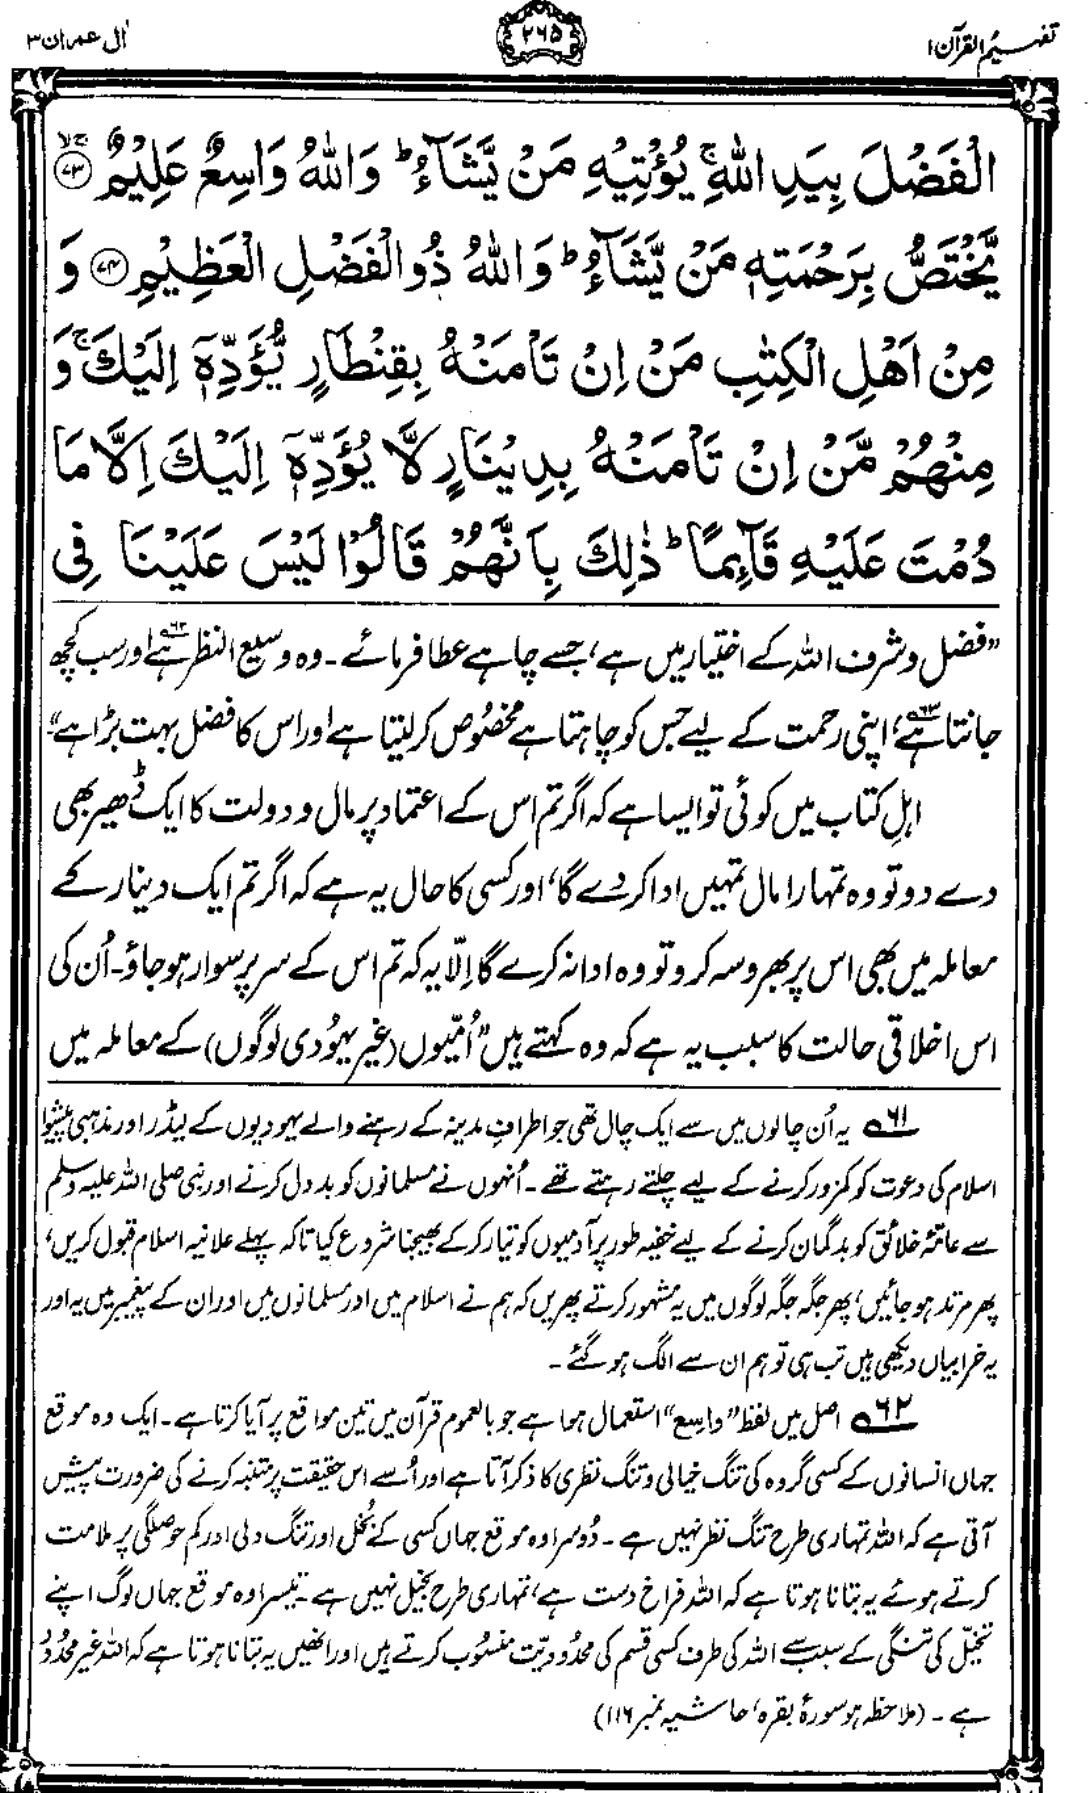 تفہیم القرآن ۱
۲۶۵
اٰل عمران ۳
الْفَضْلَ بِیَدِ اللّٰهِ ۚ یُؤْتِیْهِ مَنْ یَّشَآءُ ؕ وَاللّٰهُ وَاسِعٌ عَلِیْمٌ ﴿۷۳﴾ ۚۙ
یَّخْتَصُّ بِرَحْمَتِهٖ مَنْ یَّشَآءُ ؕ وَاللّٰهُ ذُو الْفَضْلِ الْعَظِیْمِ ﴿۷۴﴾ وَ
مِنْ اَهْلِ الْكِتٰبِ مَنْ اِنْ تَاْمَنْهُ بِقِنْطَارٍ یُّؤَدِّهٖۤ اِلَیْكَ ۚ وَ
مِنْهُمْ مَّنْ اِنْ تَاْمَنْهُ بِدِیْنَارٍ لَّا یُؤَدِّهٖۤ اِلَیْكَ اِلَّا مَا
دُمْتَ عَلَیْهِ قَآئِمًا ؕ ذٰلِكَ بِاَنَّهُمْ قَالُوْا لَیْسَ عَلَیْنَا فِی
”فضل و شرف اللہ کے اختیار میں ہے، جسے چاہے عطا فرمائے۔ وہ وسیع النظر ہے۶۲ اور سب کچھ
جانتا ہے۶۳، اپنی رحمت کے لیے جس کو چاہتا ہے مخصُوص کرلیتا ہے اور اس کا فضل بہت بڑا ہے“۔
اہلِ کتاب میں کوئی تو ایسا ہے کہ اگر تم اس کے اعتماد پر مال و دولت کا ایک ڈھیر بھی
دے دو تو وہ تمہارا مال تمہیں ادا کردے گا، اور کسی کا حال یہ ہے کہ اگر تم ایک دینار کے
معاملہ میں بھی اس پر بھروسہ کرو تو وہ ادا نہ کرے گا اِلّا یہ کہ تم اس کے سر پر سوار ہوجاؤ۔ اُن کی
اس اخلاقی حالت کا سبب یہ ہے کہ وہ کہتے ہیں ”اُمّیوں (غیر یہُودی لوگوں) کے معاملہ میں
۶۱؎ یہ اُن چالوں میں سے ایک چال تھی جو اطرافِ مدینہ کے رہنے والے یہودیوں کے لیڈر اور مذہبی پیشوا
اسلام کی دعوت کو کمزور کرنے کے لیے چلتے رہتے تھے۔ اُنھوں نے مسلمانوں کو بد دل کرنے اور نبی صلی اللہ علیہ وسلم
سے عامّۂ خلائق کو بدگمان کرنے کے لیے خفیہ طور پر آدمیوں کو تیار کرکے بھیجنا شروع کیا تاکہ پہلے علانیہ اسلام قبول کریں،
پھر مرتد ہوجائیں، پھر جگہ جگہ لوگوں میں یہ مشہور کرتے پھریں کہ ہم نے اسلام میں اور مسلمانوں میں اور ان کے پیغمبر میں یہ اور
یہ خرابیاں دیکھی ہیں تب ہی تو ہم ان سے الگ ہوگئے۔
۶۲؎ اصل میں لفظ ”واسِع“ استعمال ہوا ہے جو بالعموم قرآن میں تین مواقع پر آیا کرتا ہے۔ ایک وہ موقع
جہاں انسانوں کے کسی گروہ کی تنگ خیالی و تنگ نظری کا ذکر آتا ہے اور اُسے اس حقیقت پر متنبہ کرنے کی ضرورت پیش
آتی ہے کہ اللہ تمہاری طرح تنگ نظر نہیں ہے۔ دُوسرا وہ موقع جہاں کسی کے بُخل اور تنگ دلی اور کم حوصلگی پر ملامت
کرتے ہوئے یہ بتانا ہوتا ہے کہ اللہ فراخ دست ہے، تمہاری طرح بخیل نہیں ہے۔ تیسرا وہ موقع جہاں لوگ اپنے
تخیّل کی تنگی کے سبب سے اللہ کی طرف کسی قسم کی محدُودیّت منسُوب کرتے ہیں اور انھیں یہ بتانا ہوتا ہے کہ اللہ غیر محدُود
ہے۔ (ملاحظہ ہو سورۂ بقرہ، حاشیہ نمبر ۱۱۶)